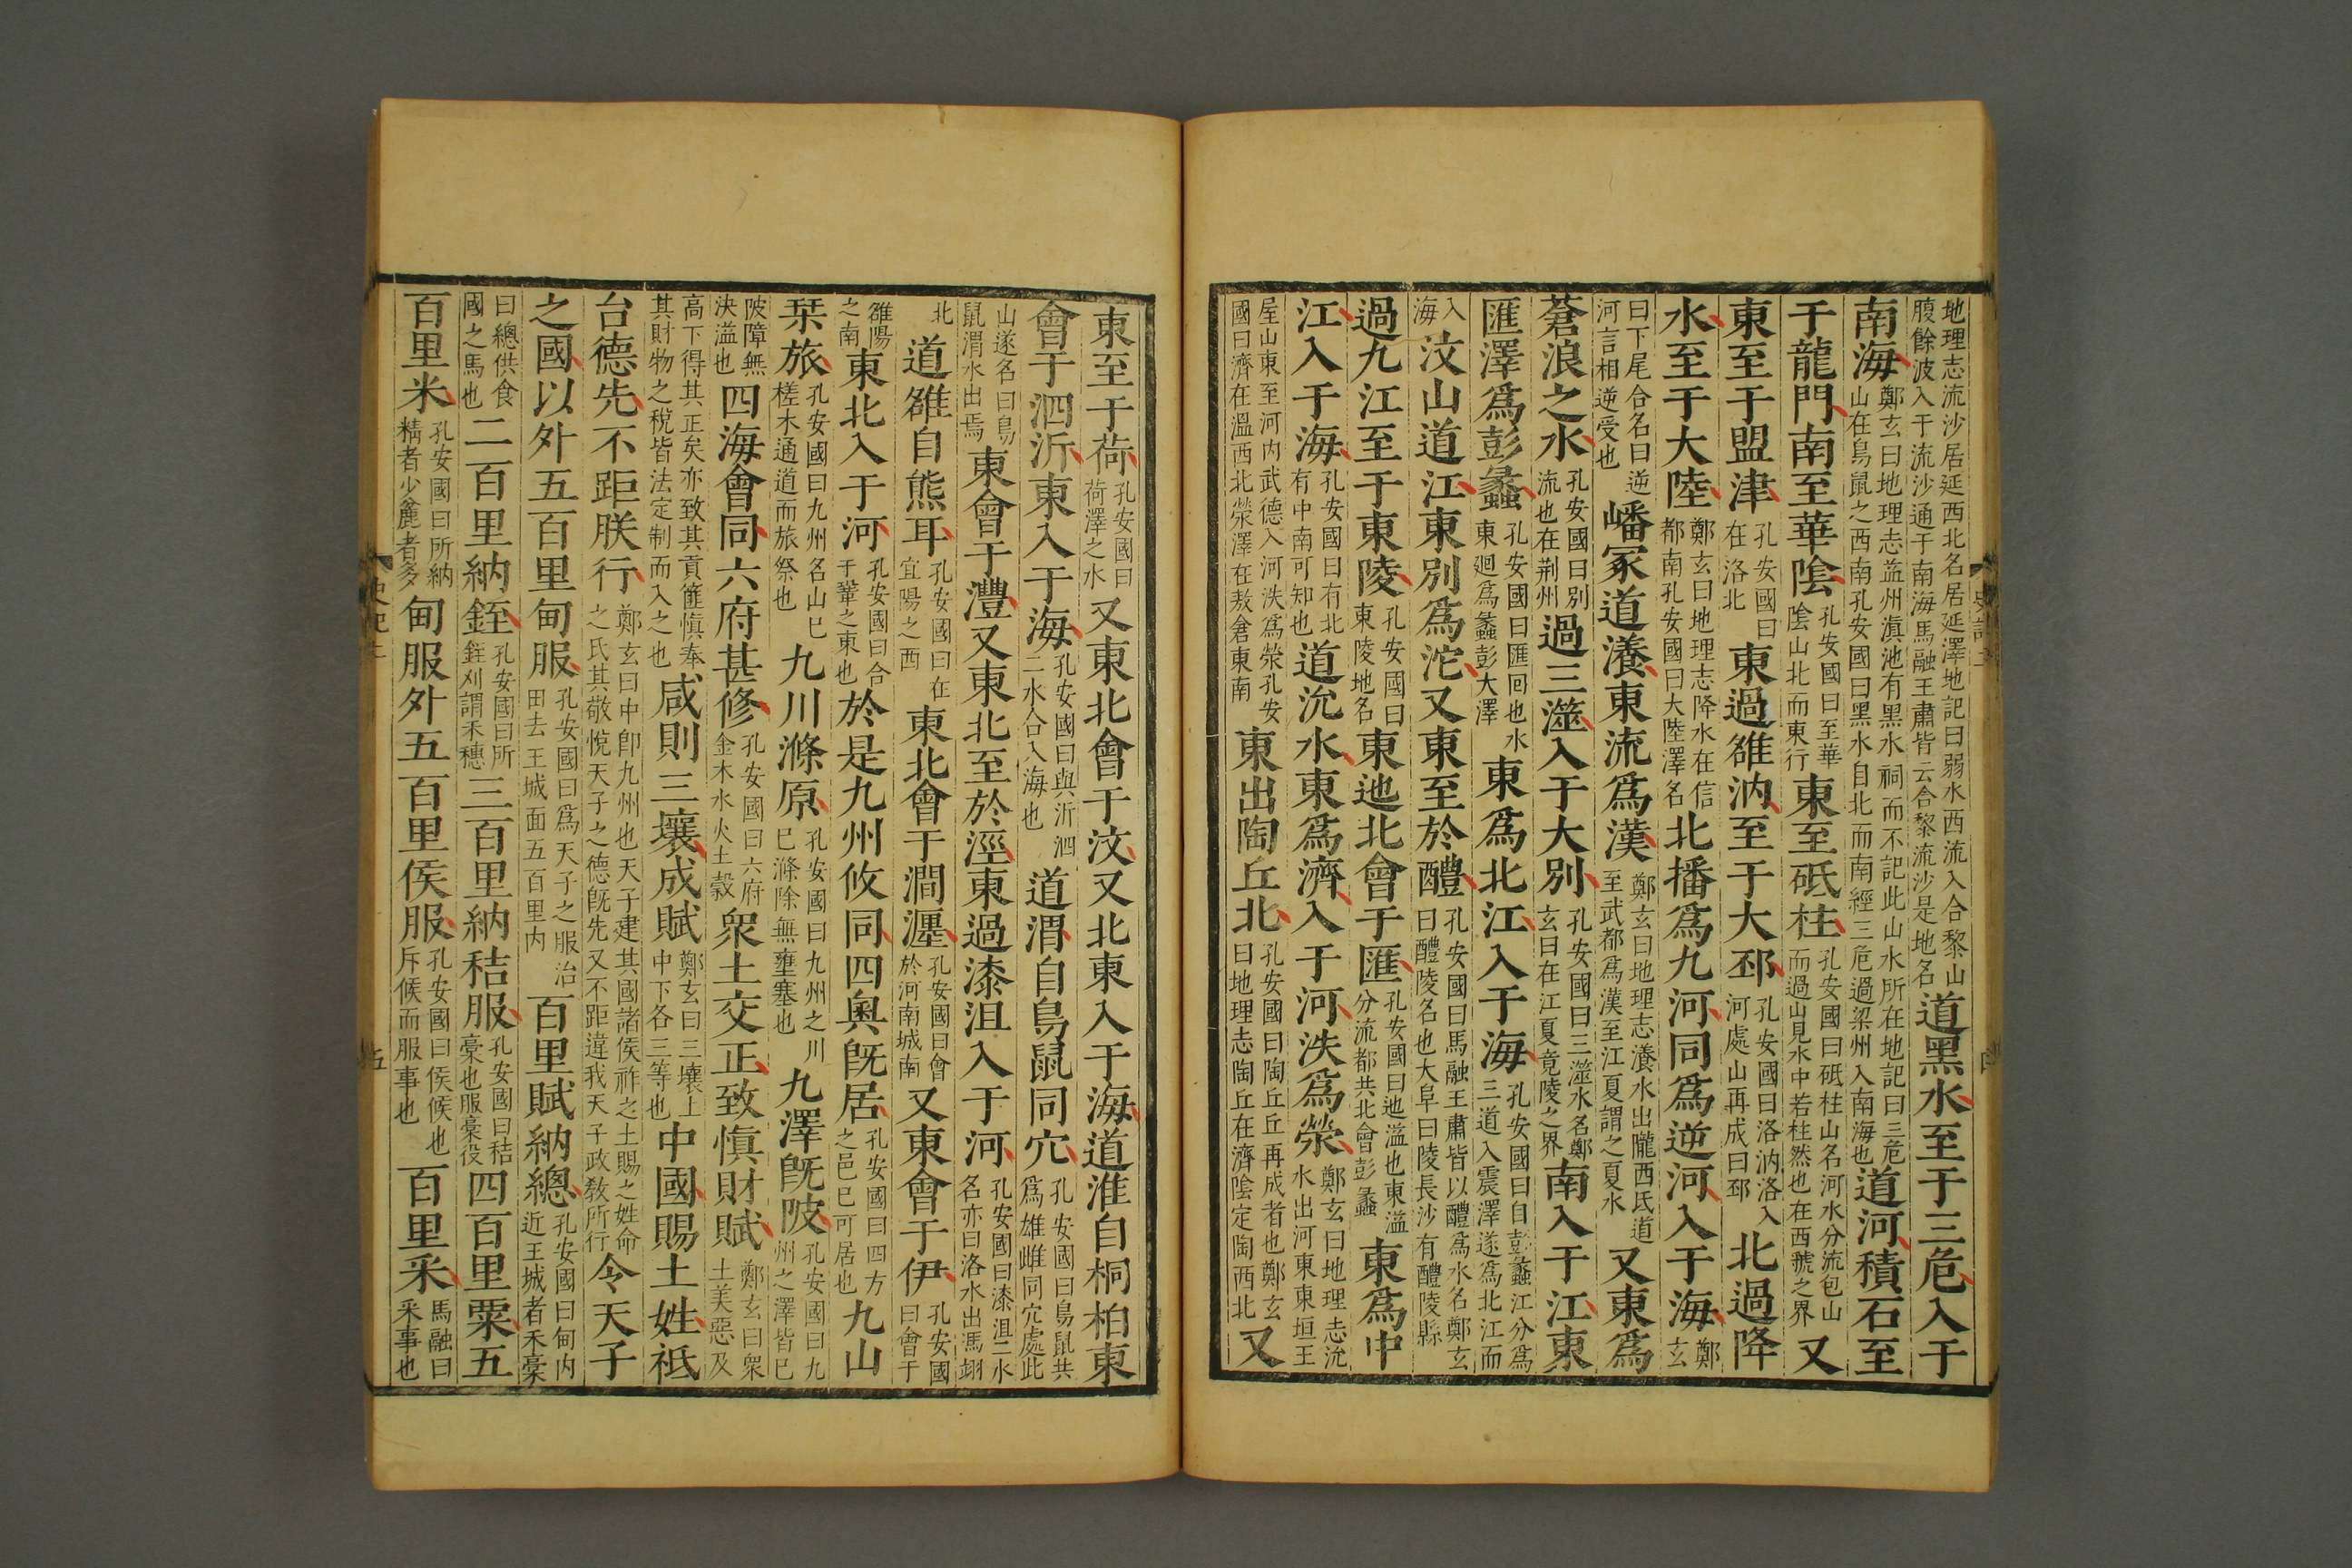 地理志流沙居延西北名居延澤地記曰弱水西流入合黎山腹餘波入于流沙通于南海馬融王肅皆云合黎流沙是地名道黑水至于三危入于
南海鄭玄曰地理志益州滇池有黑水祠而不記此山水所在地記曰三危山在鳥鼠之西南孔安國曰黑水自北而南經三危過梁州入南海也道河積石至
于龍門南至華陰孔安國曰至華陰山北而東行東至砥柱孔安國曰砥柱山名河水分流包山而過山見水中若柱然也在西虢之界又
東至于盟津孔安國曰在洛北東過雒汭至于大邳孔安國曰洛汭洛入河處山再成曰邳北過降
水至于大陸鄭玄曰地理志降水在信都南孔安國曰大陸澤名北播爲九河同爲逆河入于海鄭玄
曰下尾合名曰逆河言相逆受也嶓冢道瀁東流爲漢鄭玄曰地理志瀁水出隴西氐道至武都爲漢至江夏謂之夏水又東爲
蒼浪之水孔安國曰別流也在荆州過三澨入于大別孔安國曰三澨水名鄭玄曰在江夏竟陵之界南入于江東
匯澤爲彭蠡孔安國曰匯回也水東廻爲彭蠡大澤東爲北江入于海孔安國曰自彭蠡江分爲三道入震澤遂爲北江而
入海汶山道江東別爲沱又東至於醴孔安國曰馬融王肅皆以醴爲水名鄭玄曰醴陵名也大阜曰陵長沙有醴陵縣
過九江至于東陵孔安國曰東陵地名東迆北會于匯孔安國曰迆溢也東溢分流都共北會彭蠡東爲中
江入于海孔安國曰有北有中南可知也道沇水東爲濟入于河泆爲滎鄭玄曰地理志沇水出河東東垣王
屋山東至河内武德入河泆爲滎孔安國曰濟在溫西北滎澤在敖倉東南東出陶丘北孔安國曰陶丘丘再成者也鄭玄曰地理志陶丘在濟陰定陶西北又
東至于荷孔安國曰荷澤之水又東北會于汶又北東入于海道淮自桐柏東
會于泗沂東入于海孔安國曰與沂泗二水合入海也道渭自鳥鼠同穴孔安國曰鳥鼠共爲雄雌同穴處此
山遂名曰鳥鼠渭水出焉東會于灃又東北至於涇東過漆沮入于河孔安國曰漆沮二水名亦曰洛水出馮翊
北道雒自熊耳孔安國曰在宜陽之西東北會于澗瀍孔安國曰會於河南城南又東會于伊孔安國曰會于
雒陽之南東北入于河孔安國曰合于鞏之東也於是九州攸同四奥旣居孔安國曰四方之邑已可居也九山
栞旅孔安國曰九州名山已槎木通道而旅祭也九川滌原孔安國曰九州之川已滌除無壅塞也九澤旣陂孔安國曰九州之澤皆已
陂障無決溢也四海會同六府甚修孔安國曰六府金木水火土穀衆土交正致慎財賦鄭玄曰衆土美惡及
高下得其正矣亦致其貢篚慎奉其財物之税皆法定制而入之也咸則三壤成賦鄭玄曰三壤上中下各三等也中國賜土姓祗
台德先不距朕行鄭玄曰中卽九州也天子建其國諸侯祚之土賜之姓命之氏其敬悅天子之德旣先又不距違我天子政教所行令天子
之國以外五百里甸服孔安國曰爲天子之服治田去王城面五百里内百里賦納總孔安國曰甸内近王城者禾稾
曰總供食國之馬也二百里納銍孔安國曰所銍刈謂禾穗三百里納秸服孔安國曰秸稾也服稾役四百里粟五
百里米孔安國曰所納精者少麄者多甸服外五百里侯服孔安國曰侯候也斥候而服事也百里采馬融曰采事也
五